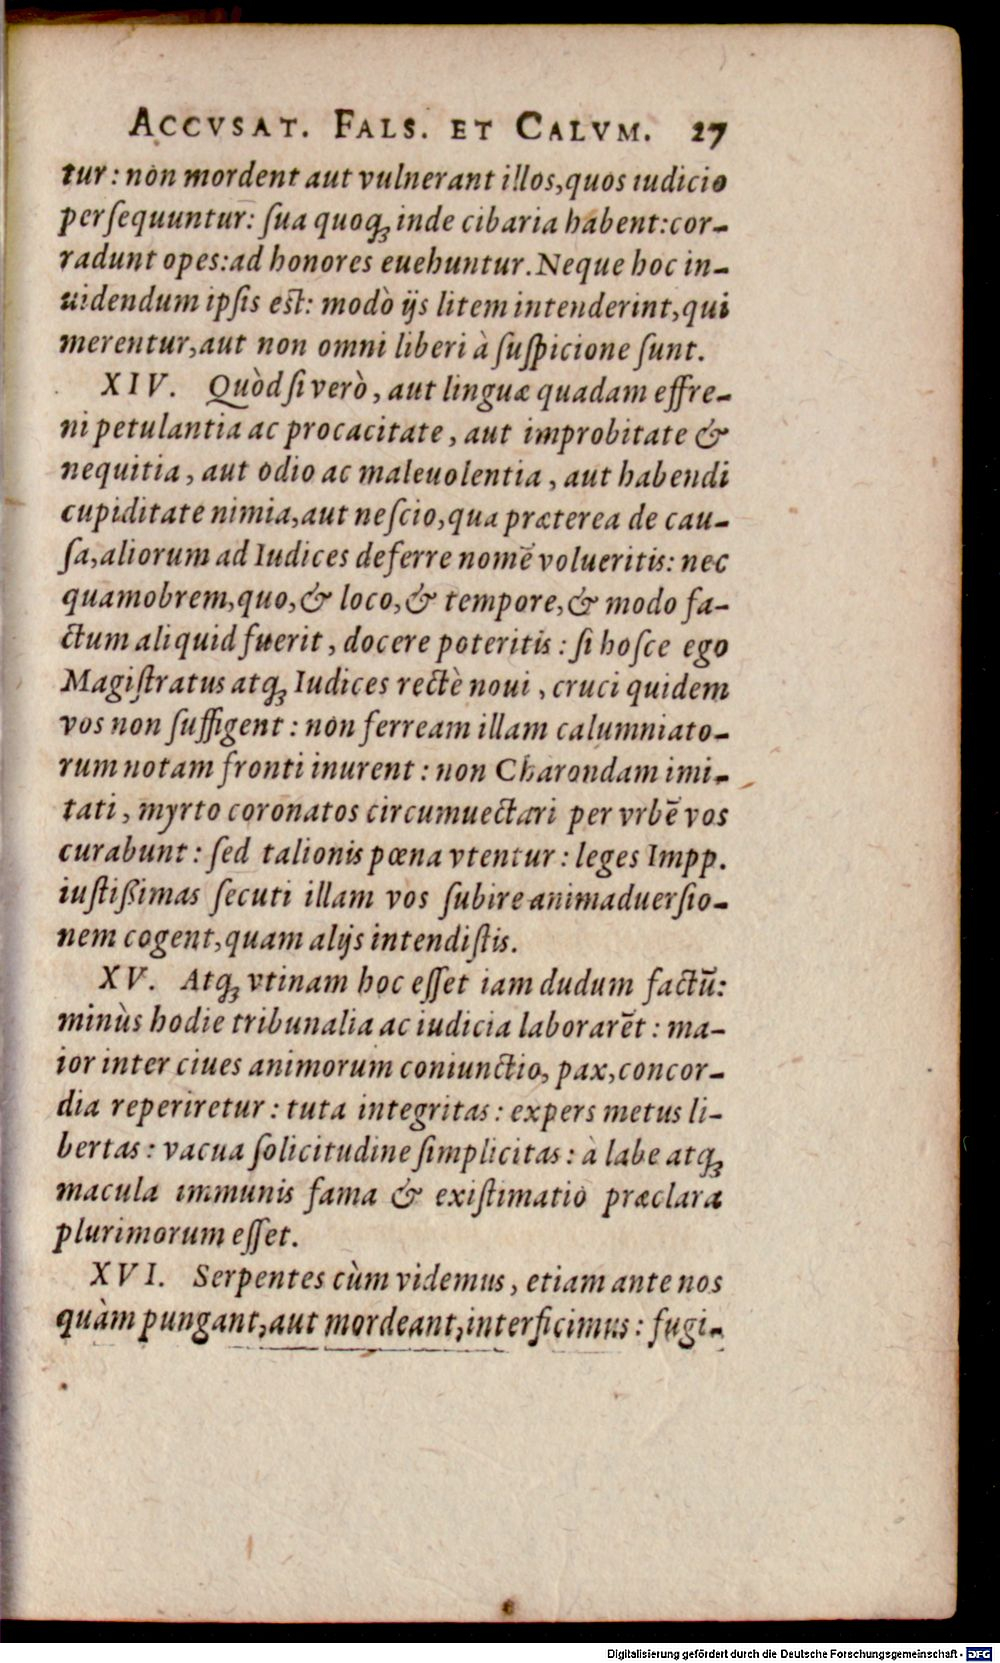 ACCVSAT. FALS. ET CALVM. 27
tur: non mordent aut vulnerant illos, quos iudicio
perſequuntur: ſua quoq; inde cibaria habent: cor-
radunt opes: ad honores euehuntur. Neque hoc in-
uidendum ipſis eſt: modò ijs litem intenderint, qui
merentur, aut non omni liberi à ſuſpicione ſunt.
XIV. Quòd ſi verò, aut linguæ quadam effre-
ni petulantia ac procacitate, aut improbitate &
nequitia, aut odio ac maleuolentia, aut habendi
cupiditate nimia, aut neſcio, qua præterea de cau-
ſa, aliorum ad Iudices deferre nomẽ volueritis: nec
quamobrem, quo, & loco, & tempore, & modo fa-
ctum aliquid fuerit, docere poteritis: ſi hoſce ego
Magiſtratus atq; Iudices rectè noui, cruci quidem
vos non ſuffigent: non ferream illam calumniato-
rum notam fronti inurent: non Charondam imi-
tati, myrto coronatos circumuectari per vrbẽ vos
curabunt: ſed talionis pœna vtentur: leges Impp.
iuſtißimas ſecuti illam vos ſubire animaduerſio-
nem cogent, quam alijs intendiſtis.
XV. Atq; vtinam hoc eſſet iam dudum factũ:
minùs hodie tribunalia ac iudicia laborarẽt: ma-
ior inter ciues animorum coniunctio, pax, concor-
dia reperiretur: tuta integritas: expers metus li-
bertas: vacua ſolicitudine ſimplicitas: à labe atq;
macula immunis fama & exiſtimatio præclara
plurimorum eſſet.
XVI. Serpentes cùm videmus, etiam ante nos
quàm pungant, aut mordeant, interficimus: fugi-
Digitalisierung gefördert durch die Deutsche Forschungsgemeinschaft - DFG